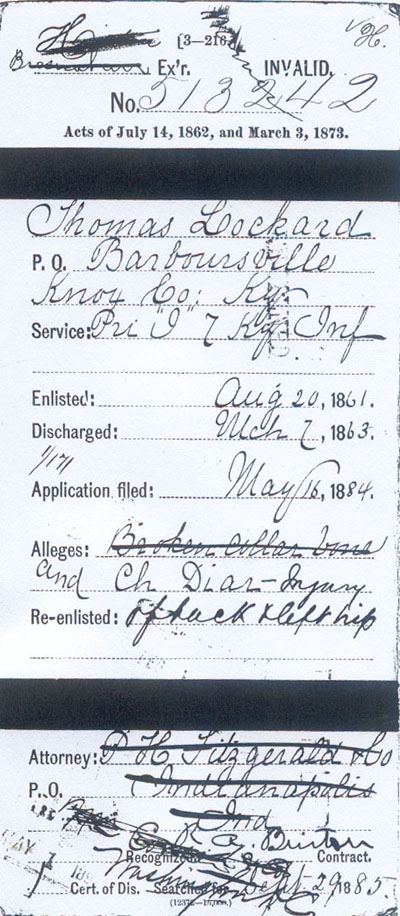 [3-216.]
H.
Ex'r. INVALID.
No. 513242
Acts of July 14, 1862, and March 3, 1873.
Thomas Lockard
P. O. Barboursville
Knox Co; Ky.
Service: Pri "I" 7 Ky. Inf
Enlisted: Aug 20, 1861.
Discharged: Mch 7, 1863.
1/171
Application filed: May 16, 1884.
Alleges: Broken collar bone
and Ch Diar- Injury
Re-enlisted: of back & left hip
Attorney: P H Fitzgerald & Co
P. O. Indianapolis
Ind
Recognized Contract.
Washington D.C.
Cert. of Dis. Searched for Sept. 29 1885.